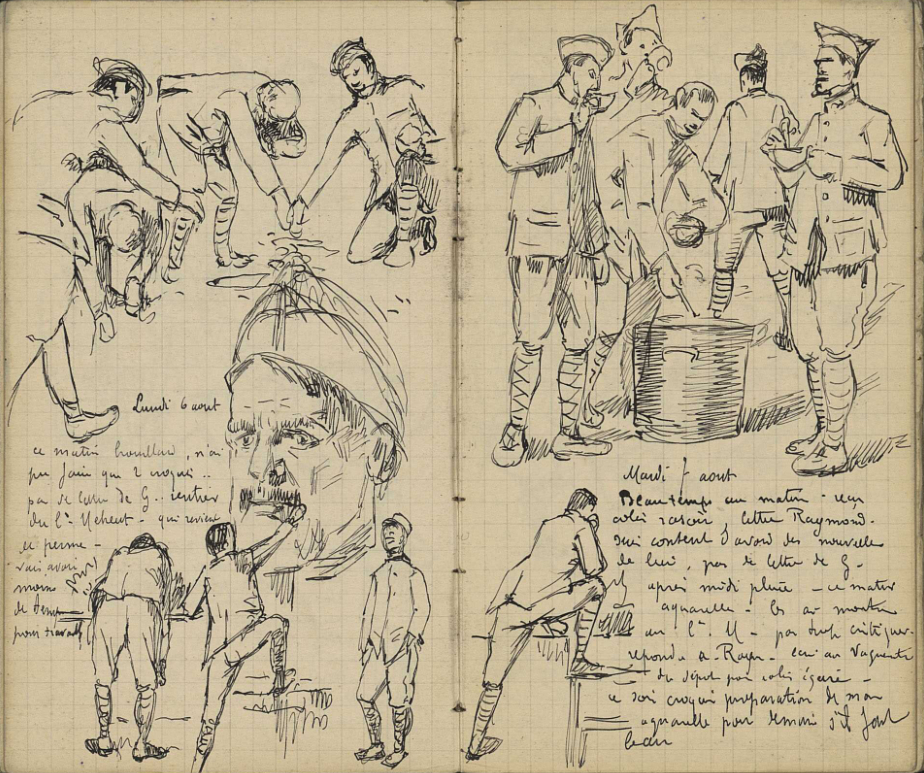 Lundi 6 aout
ce matin brouillard, n'ai
pu faire que 2 croquis ..
pas de lettre de G.. rentrée
du Lt Méheut - qui revient
de perme -
vais avoir
moins
de temps
pour travail
Mardi 7 aout
Beau temps au matin - reçu
colis rasoir, lettre Raymond.
suis content d'avoir des nouvelles
de lui, pas de lettre de G -
après midi pluie - ce matin
aquarelle - les ai montré
au Lt. M - pas trop critiquer.
répond à Raym - écrit au Vaguemestre
du dépôt pour colis égaré -
ce soir croquis préparation de mon
aquarelle pour demain s'il fait
beau